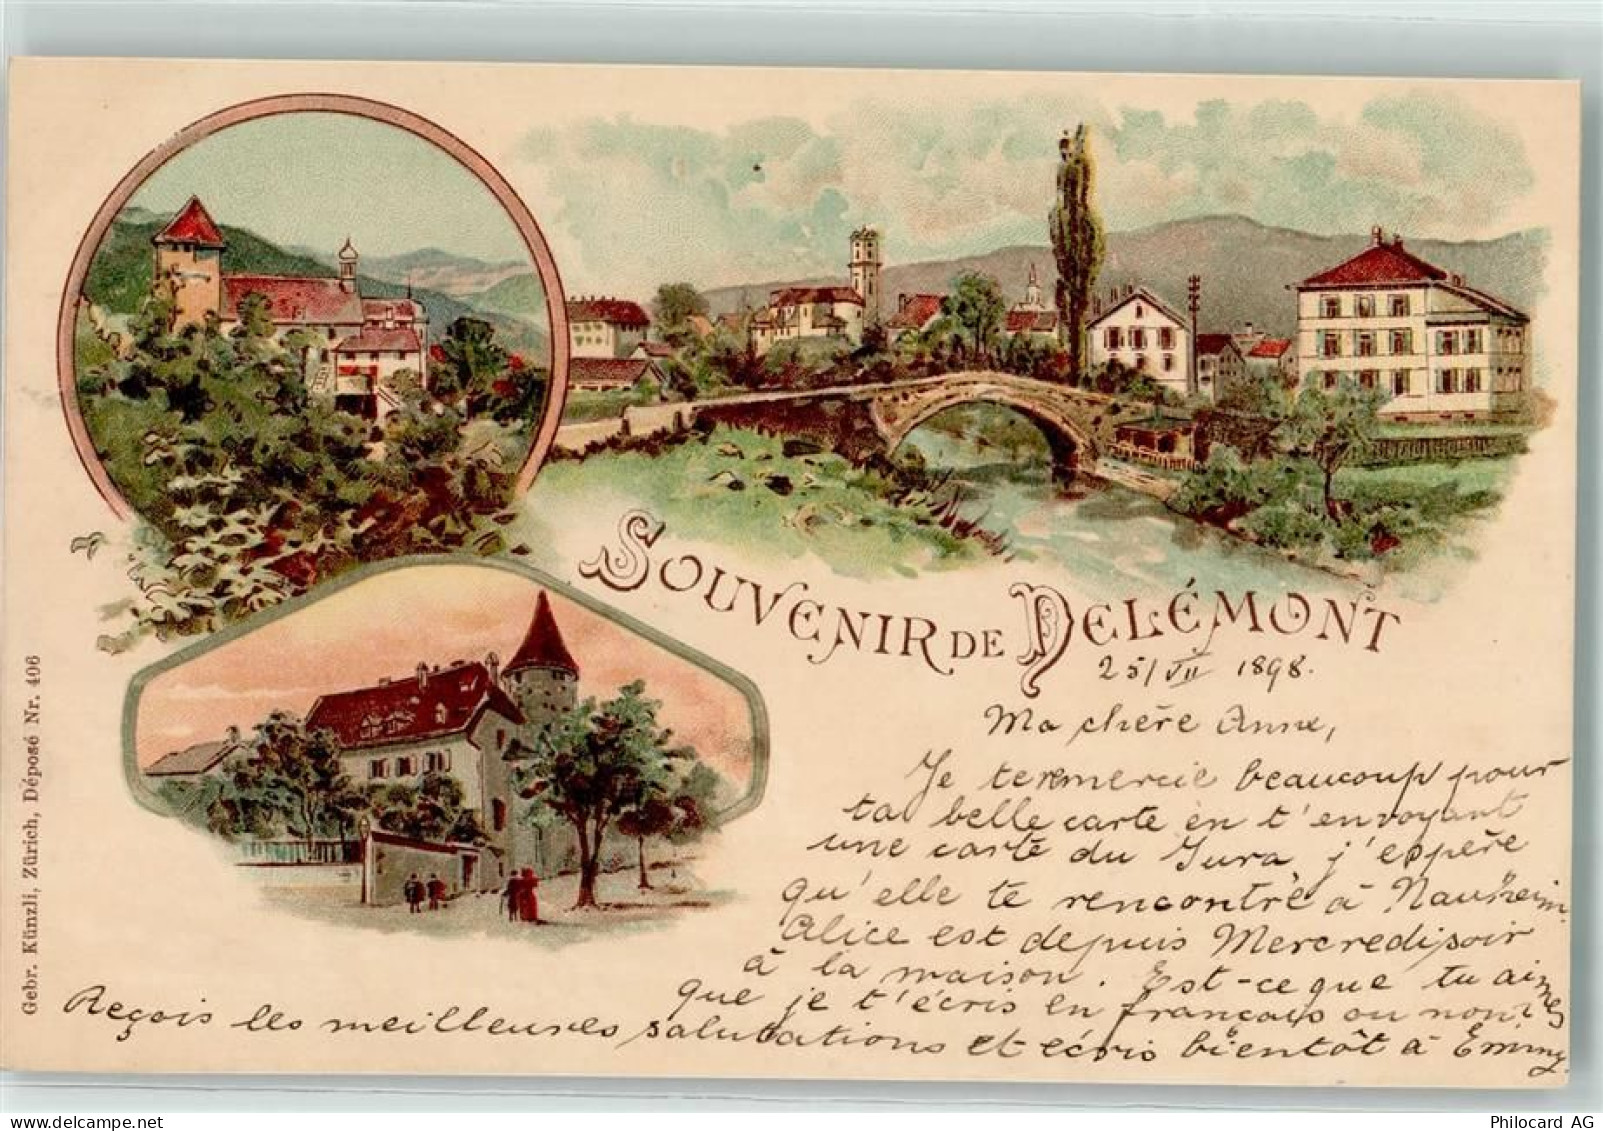 SOUVENIR DE DELÉMONT
25/VII 1898.
Ma chère Anne,
Je te remercie beaucoup pour
ta belle carte en t'envoyant
une carte du Jura, j'espère
qu'elle te rencontre à Nauheim.
Alice est depuis Mercredi soir
à la maison. Est-ce que tu aimes
que je t'écris en français ou non?
Reçois les meilleures salutations et écris bientôt à Emmy.
Gebr. Künzli, Zürich, Déposé Nr. 406
Philocard AG